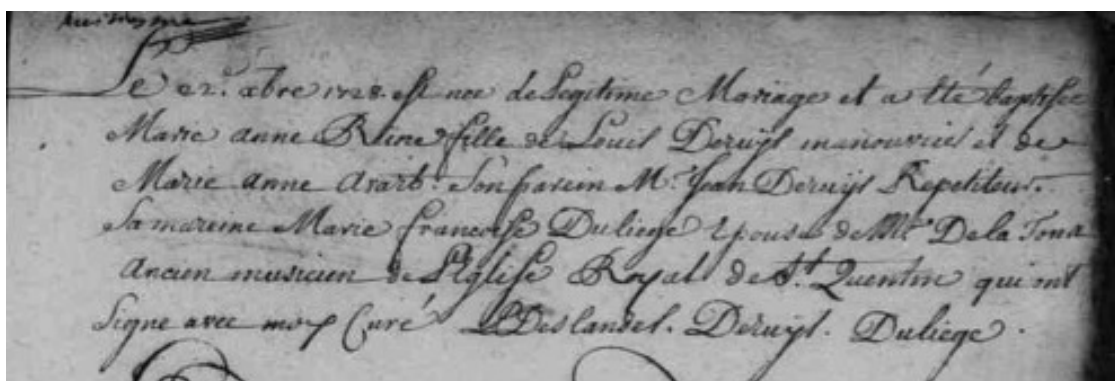 Le 22.e xbre 1728. est nee de Legitime Mariage et a ete baptisee
Marie anne Reine fille de Louis Deruys manouvrier et de
Marie Anne avart. Son parein Mr. Jean Deruys Repetiteur.
Sa mareine Marie francoise Duliege Epouse de Mr De la
Ancien musicien de L'Eglise Royal de St. Quentin qui ont
Signe avec moy Curé Deslandes. Deruys. Duliege.